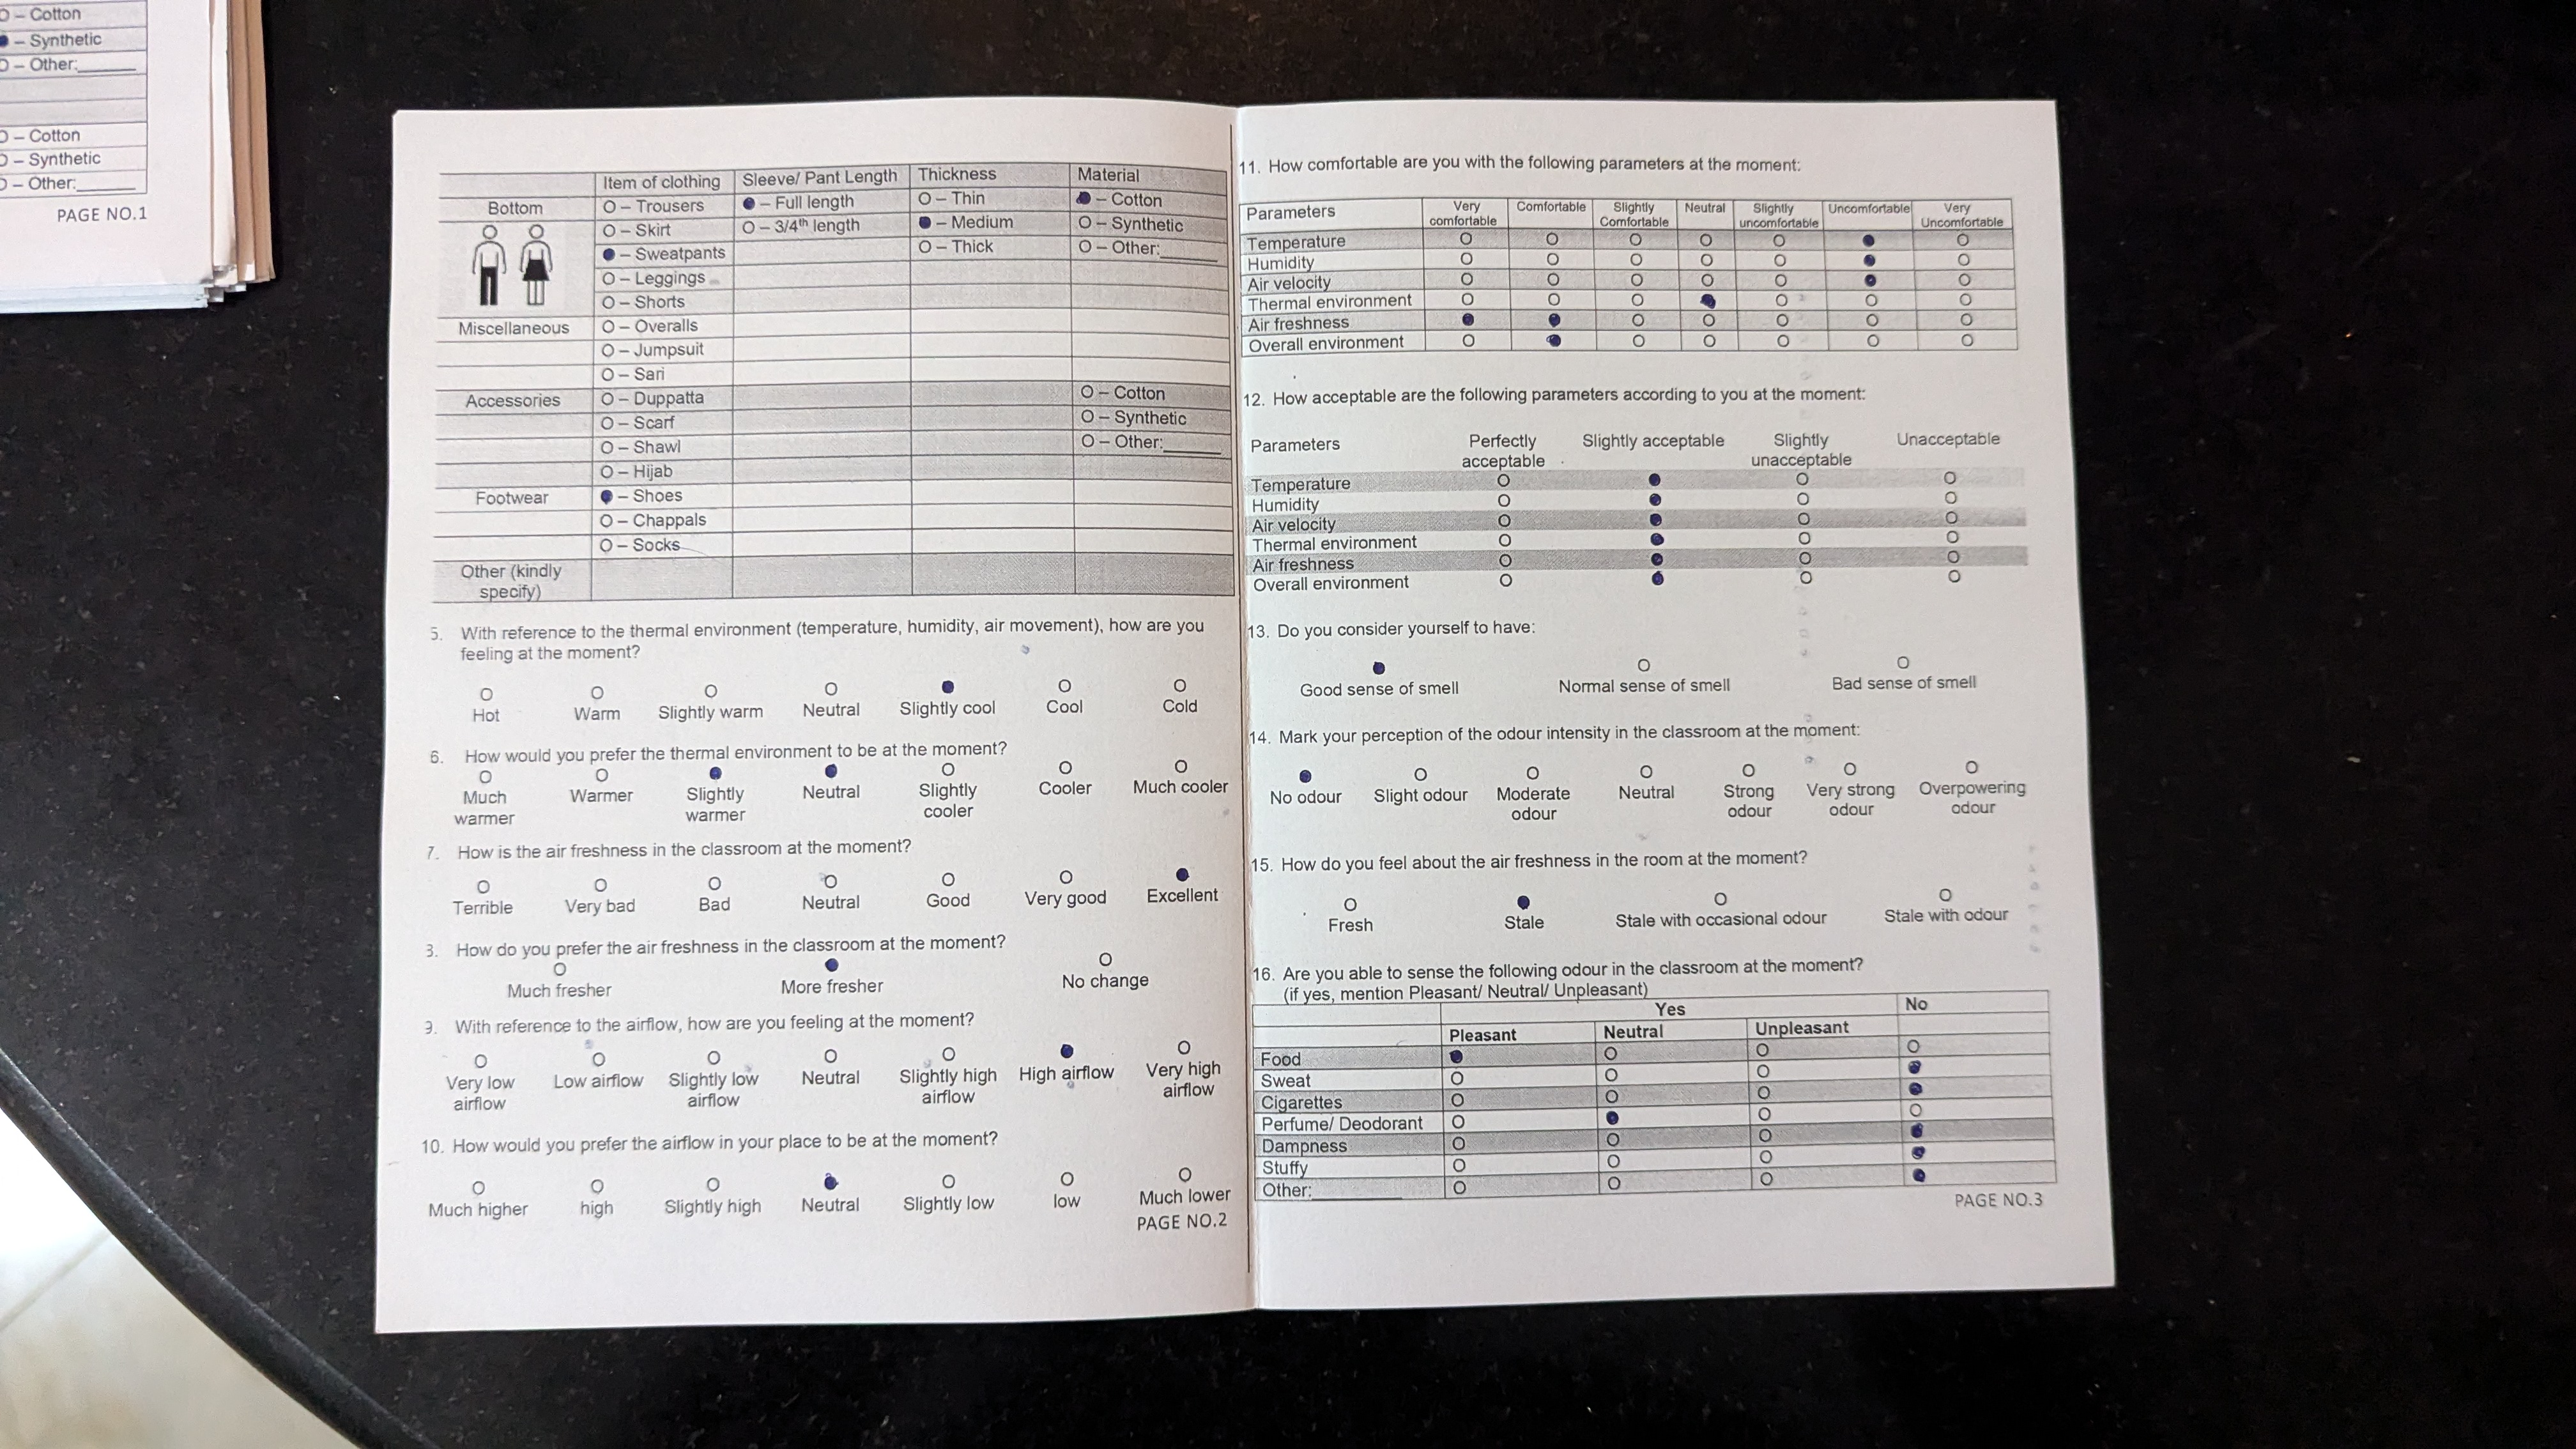 O – Cotton
● – Synthetic
O – Other:______
O – Cotton
O – Synthetic
O – Other:______
PAGE NO.1
Item of clothing Sleeve/ Pant Length Thickness Material
Bottom O – Trousers ● – Full length O – Thin ● – Cotton
O – Skirt O – 3/4th length ● – Medium O – Synthetic
● – Sweatpants O – Thick O – Other:______
O – Leggings
O – Shorts
Miscellaneous O – Overalls
O – Jumpsuit
O – Sari
Accessories O – Duppatta O – Cotton
O – Scarf O – Synthetic
O – Shawl O – Other:______
O – Hijab
Footwear ● – Shoes
O – Chappals
O – Socks
Other (kindly
specify)
5. With reference to the thermal environment (temperature, humidity, air movement), how are you
feeling at the moment?
O O O O ● O O
Hot Warm Slightly warm Neutral Slightly cool Cool Cold
6. How would you prefer the thermal environment to be at the moment?
O O ● ● O O O
Much Warmer Slightly Neutral Slightly Cooler Much cooler
warmer warmer cooler
7. How is the air freshness in the classroom at the moment?
O O O O O O ●
Terrible Very bad Bad Neutral Good Very good Excellent
8. How do you prefer the air freshness in the classroom at the moment?
O ● O
Much fresher More fresher No change
9. With reference to the airflow, how are you feeling at the moment?
O O O O O ● O
Very low Low airflow Slightly low Neutral Slightly high High airflow Very high
airflow airflow airflow airflow
10. How would you prefer the airflow in your place to be at the moment?
O O O ● O O O
Much higher high Slightly high Neutral Slightly low low Much lower
PAGE NO.2
11. How comfortable are you with the following parameters at the moment:
Parameters Very Comfortable Slightly Neutral Slightly Uncomfortable Very
comfortable Comfortable uncomfortable Uncomfortable
Temperature O O O O O ● O
Humidity O O O O O ● O
Air velocity O O O O O ● O
Thermal environment O O O ● O O O
Air freshness ● ● O O O O O
Overall environment O ● O O O O O
12. How acceptable are the following parameters according to you at the moment:
Parameters Perfectly Slightly acceptable Slightly Unacceptable
acceptable unacceptable
Temperature O ● O O
Humidity O ● O O
Air velocity O ● O O
Thermal environment O ● O O
Air freshness O ● O O
Overall environment O ● O O
13. Do you consider yourself to have:
● O O
Good sense of smell Normal sense of smell Bad sense of smell
14. Mark your perception of the odour intensity in the classroom at the moment:
● O O O O O O
No odour Slight odour Moderate Neutral Strong Very strong Overpowering
odour odour odour odour
15. How do you feel about the air freshness in the room at the moment?
O ● O O
Fresh Stale Stale with occasional odour Stale with odour
16. Are you able to sense the following odour in the classroom at the moment?
(if yes, mention Pleasant/ Neutral/ Unpleasant)
Yes No
Pleasant Neutral Unpleasant
Food ● O O O
Sweat O O O ●
Cigarettes O O O ●
Perfume/ Deodorant O ● O O
Dampness O O O ●
Stuffy O O O ●
Other:__________ O O O ●
PAGE NO.3